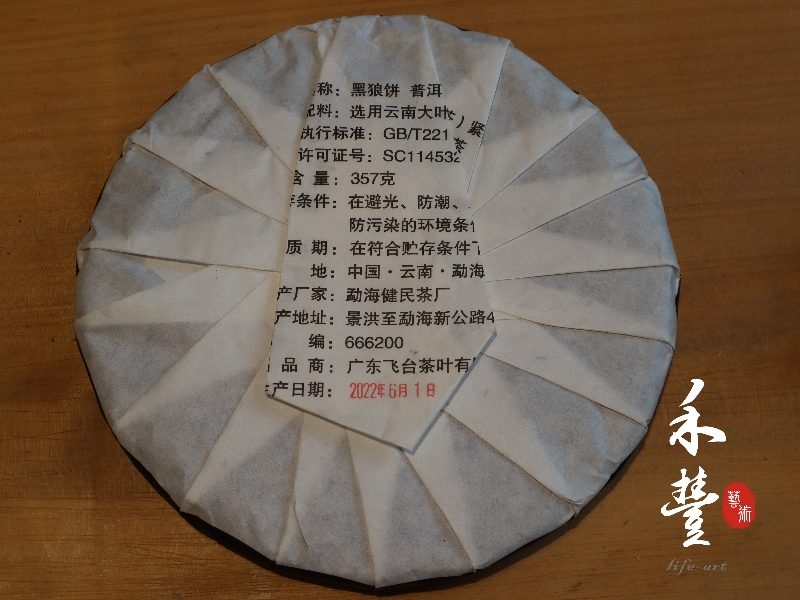 称：黑狼饼 普洱
配料：选用云南大叶
茶）紧
执行标准：GB/T221
许可证号：SC114532
含 量：357克
存条件：在避光、防潮、
防污染的环境条件
质 期：在符合贮存条件下
地：中国·云南·勐海
产厂家：勐海健民茶厂
产地址：景洪至勐海新公路4
编：666200
品 商：广东飞台茶叶有
生产日期：2022年6月1日
禾豐
藝術
life-art